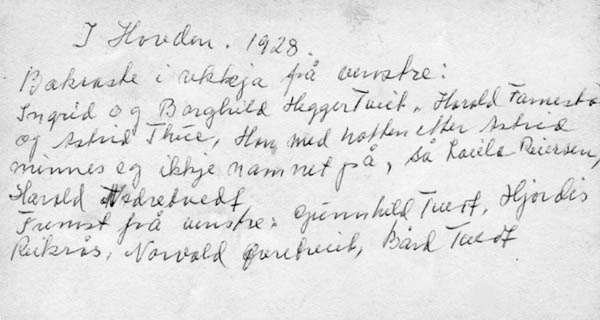 I Hovden. 1928.
Bakraste i rekkja frå venstre:
Ingrid og Borghild Heggertveit, Harald Farnestø
og Astrid Thue, Hon med hatten etter Astrid
minnes eg ikkje namnet på, så Reiersen,
Harald
Fremst frå venstre: Gunnhild Tvedt, Hjørdis
Norvald Øvretveit, Bård Tvedt